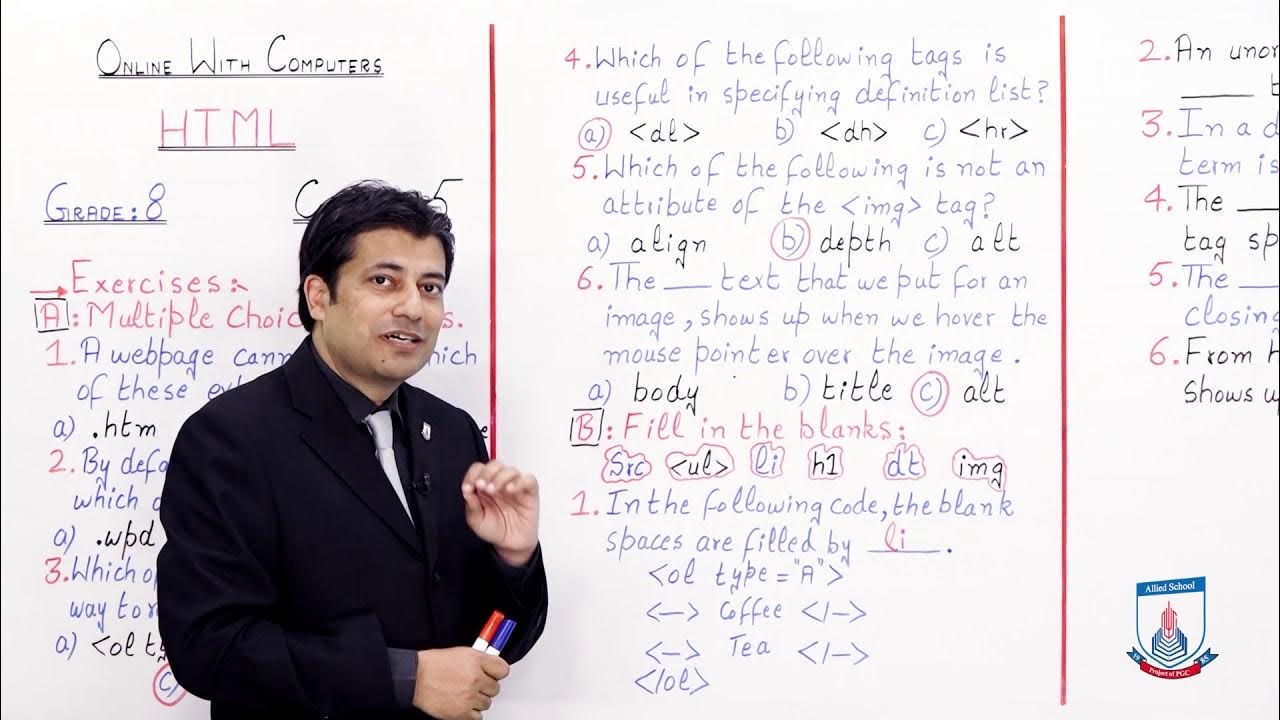 ONLINE WITH COMPUTERS
HTML
GRADE: 8
C 5
Exercises:
A : Multiple Choic s.
1. A webpage cann hich
of these ex
a) .htm e
2. By defa
which
a) .wpd
3. Which o
way to
a) <ol ty
c)
4. Which of the following tags is
useful in specifying definition list?
a) <dl> b) <dh> c) <hr>
5. Which of the following is not an
attribute of the <img> tag?
a) align b) depth c) alt
6. The ___ text that we put for an
image, shows up when we hover the
mouse pointer over the image.
a) body b) title c) alt
B : Fill in the blanks:
Src <ul> li h1 dt img
1. In the following code, the blank
spaces are filled by li .
<ol type="A">
<—> Coffee </—>
<—> Tea </—>
</ol>
2. An unor
____ t
3. In a d
term is
4. The ___
tag sp
5. The ___
closing
6. From h
shows u
Allied School
19 85
Project of PGC